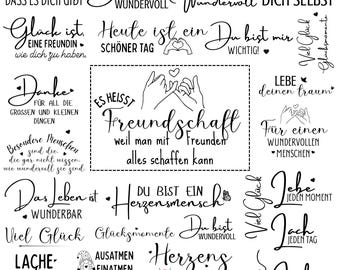 DASS ES DICH GIBT
WUNDERVOLL
Wundervoll
DICH SELBST
Glück ist,
EINE FREUNDIN
wie dich zu haben
Heute ist ein
SCHÖNER TAG
Du bist mir
WICHTIG!
Viel Glück
Glücksmomente
Danke
FÜR ALL DIE
GROSSEN UND KLEINEN
DINGEN
ES HEISST
Freundschaft
weil man mit Freunden
alles schaffen kann
LEBE
deinen traum
Für einen
WUNDERVOLLEN
MENSCHEN
Besondere Menschen
sind die,
die gar nicht wissen,
wie wundervoll sie sind
Das Leben ist
WUNDERBAR
DU BIST EIN
Herzensmensch
Viel Glück
Lebe
JEDEN MOMENT
Lach
JEDEN TAG
Viel Glück
Glücksmomente
Du bist
WUNDERVOLL
LACHE
AUSATMEN
EINATMEN
Herzens